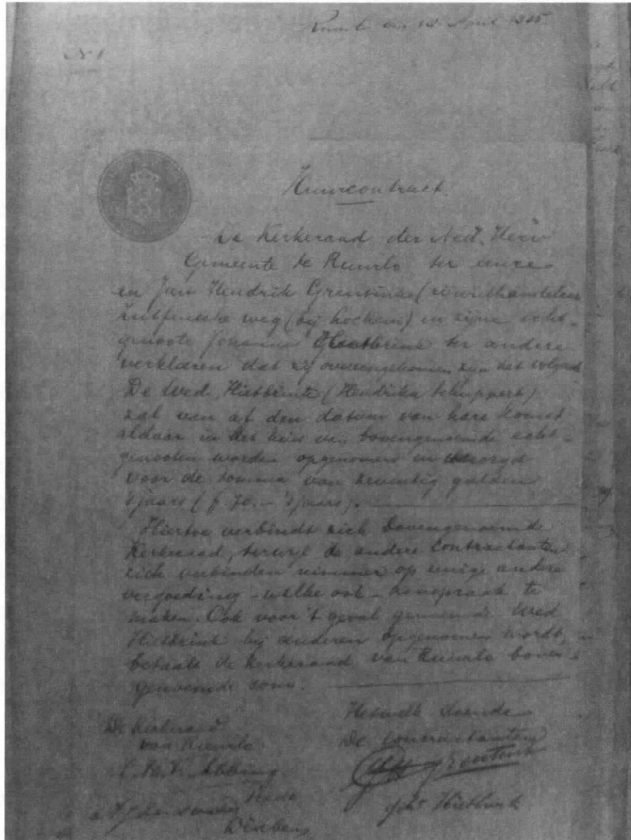 April 1885
No 1
Huurcontract
De Kerkeraad der Ned. Herv
Gemeente te Ruurlo ter eenre
en Jan Hendrik Grensink
weg (bij Lochem) en zijne echt-
genoote Johanna Hietbrink ter andere
verklaren dat zij overeengekomen zijn het volgende
De Wed. Hietbrink (Hendrika Schuppert)
zal van af den datum van hare komst
aldaar in het huis van bovengenoemde echt-
genooten worden opgenomen en verzorgd
voor de somma van zeventig gulden
'sjaars (f. 70.- 'sjaars).
Hiertoe verbindt zich bovengenoemde
Kerkeraad, terwijl de andere contractanten
zich verbinden nimmer op eenige andere
vergoeding - welke ook - aanspraak te
maken. Ook voor 't geval genoemde Wed
Hietbrink bij anderen opgenomen wordt,
betaalt de kerkeraad van Ruurlo boven-
genoemde som.
De Kerkeraad
van Ruurlo
Hetwelk doende
De Contractanten
Hietbrink